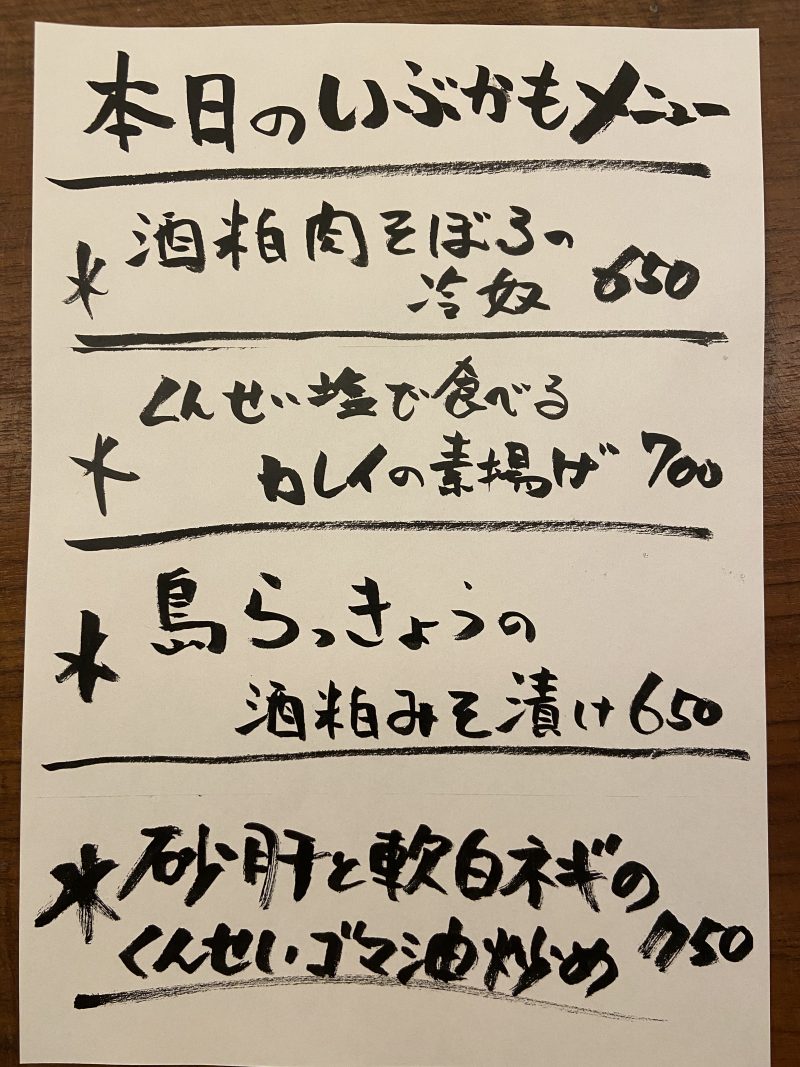 本日のいぶかもメニュー
* 酒粕肉そぼろの
冷奴 650
くんせい塩で食べる
* カレイの素揚げ 700
* 島らっきょうの
酒粕みそ漬け 650
* 砂肝と軟白ネギの
くんせいゴマ油炒め 750